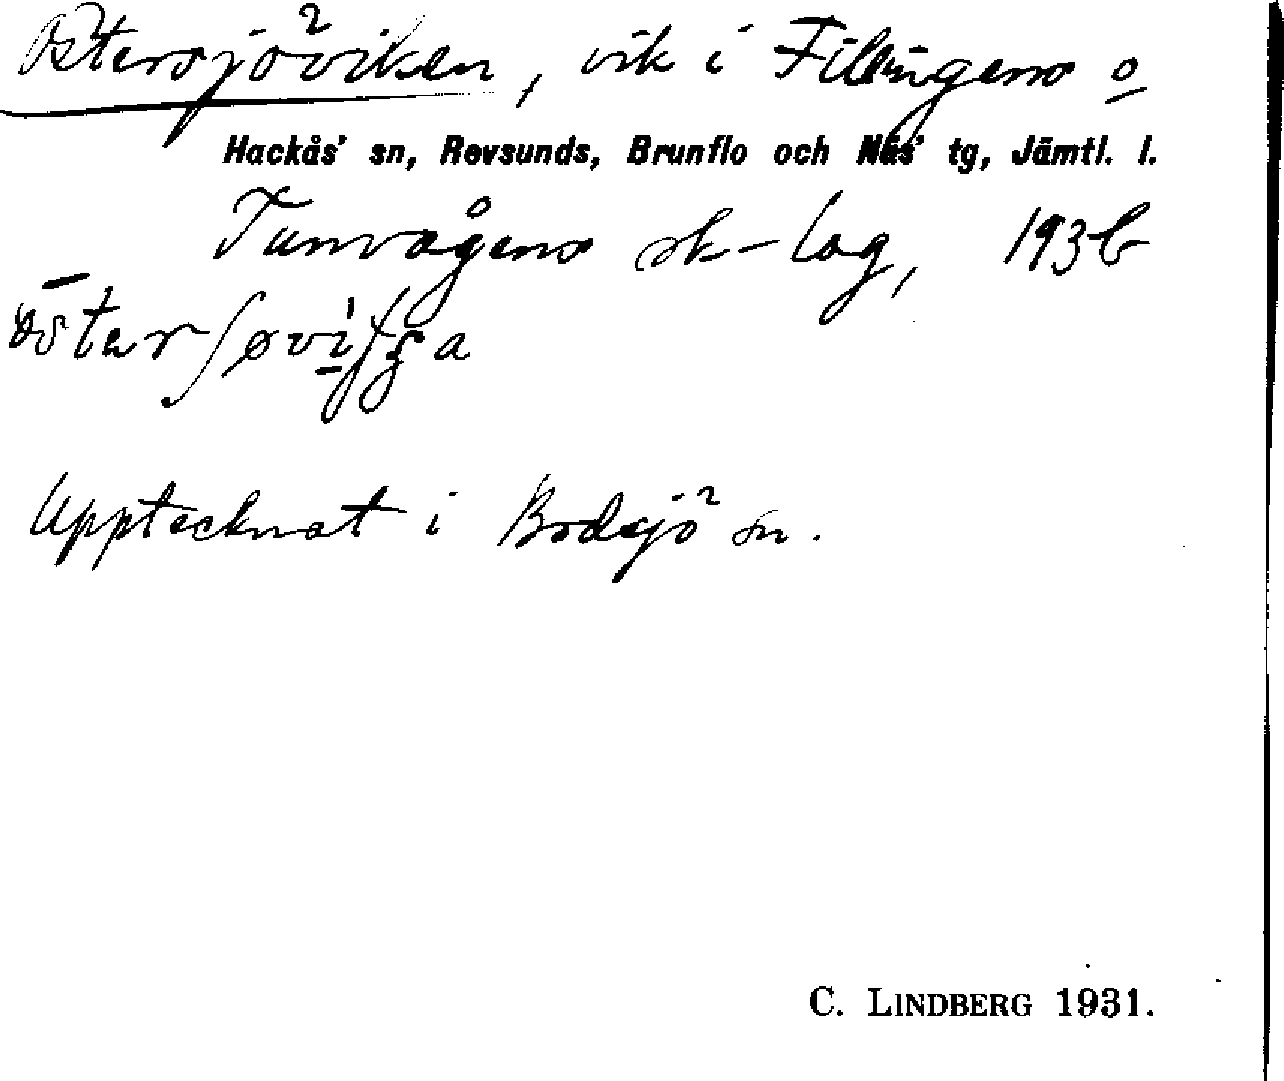 Östersjöviken, vik i Fillingens o
Hackås' sn, Revsunds, Brunflo och Näs' tg, Jämtl. l.
Tunvågens sk-lag, 193b
Upptecknat i Bodsjö sn.
C. LINDBERG 1931.